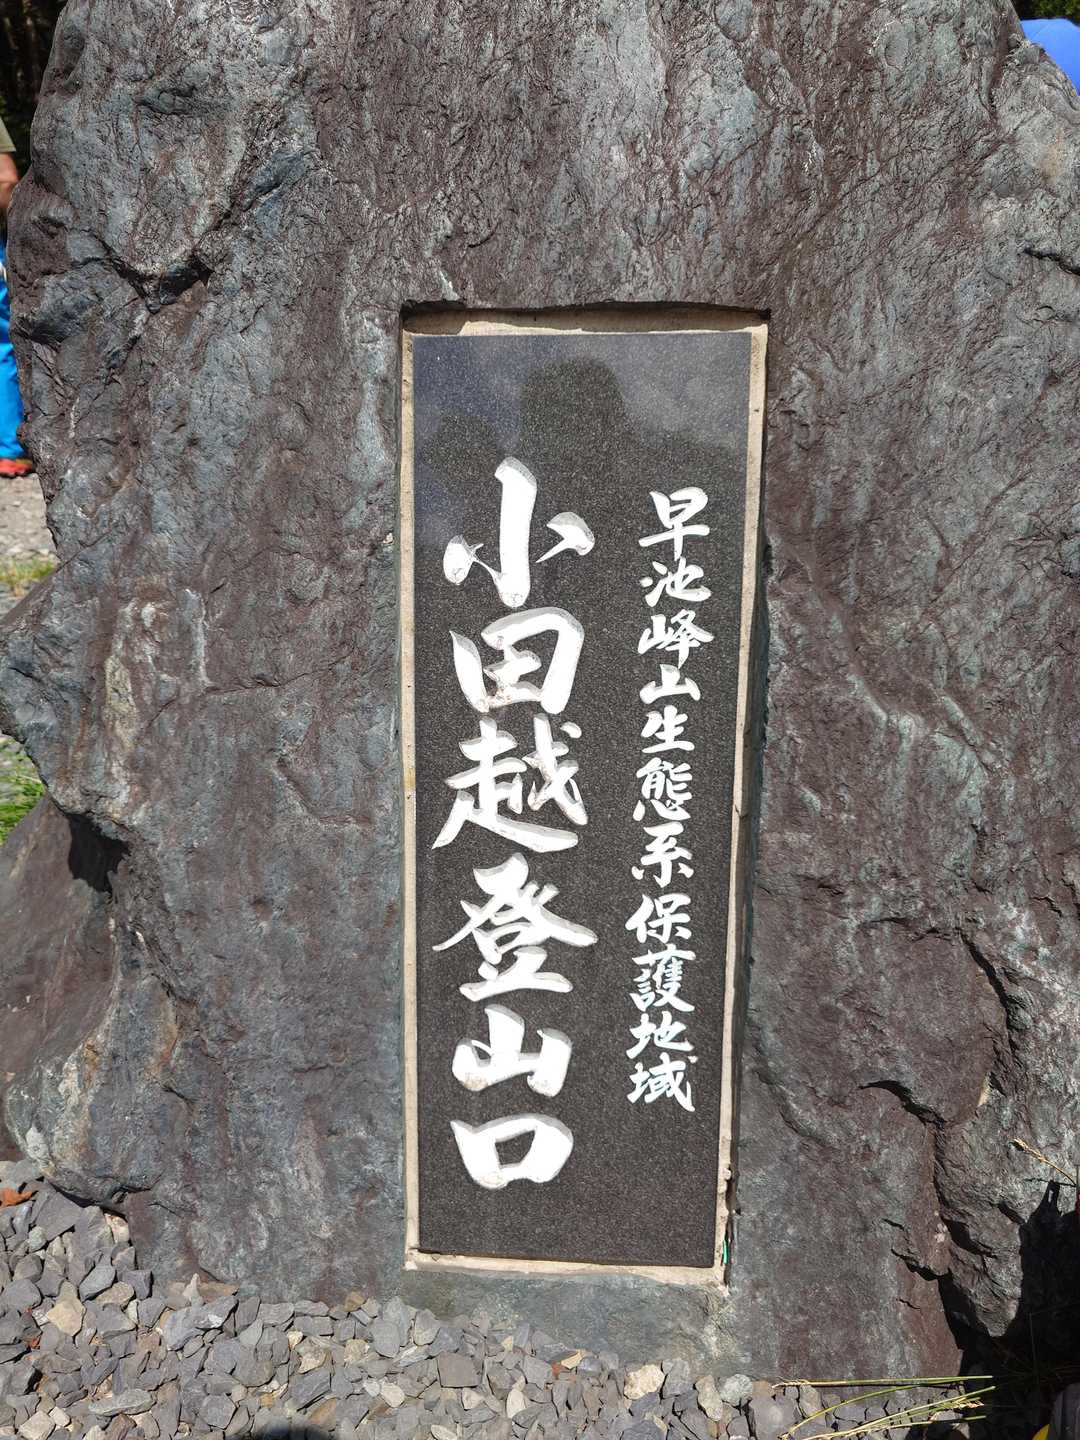 早池峰山生態系保護地域
小田越登山口